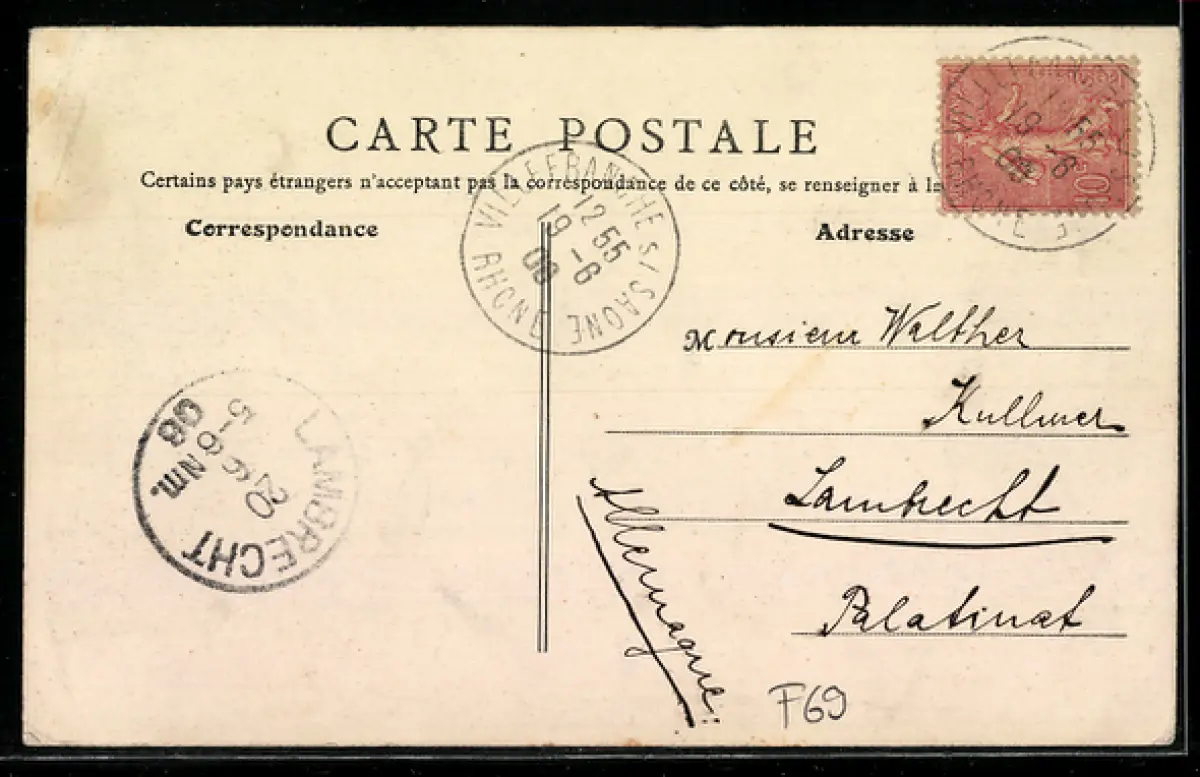 CARTE POSTALE
Certains pays étrangers n'acceptant pas la correspondance de ce côté, se renseigner à la
Correspondance
Adresse
VILLEFRANCHE S/SAONE
12 55
19 -6
08
RHONE
VILLEFRANCHE S/SAONE
55
19 -6
08
RHONE
10
Monsieur Walther
Kullmer
Lambrecht
Palatinat
Allemagne:
LAMBRECHT
20 6
5-6 Nm.
08
LAMBRECHT
F69